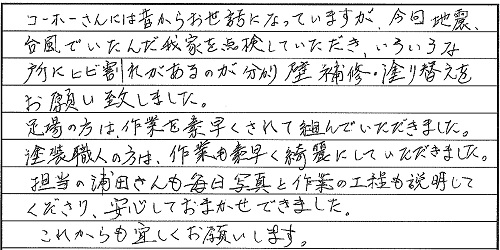 コーホーさんには昔からお世話になっていますが、今回地震、
台風でいたんだ我家を点検していただき、いろいろな
所にヒビ割れがあるのが分り壁補修・塗り替えを
お願い致しました。
足場の方は、作業を素早くされて組んでいただきました。
塗装職人の方は、作業も素早く綺麗にしていただきました。
担当の浦田さんも毎日写真と作業の工程も説明して
くださり、安心しておまかせできました。
これからも宜しくお願いします。